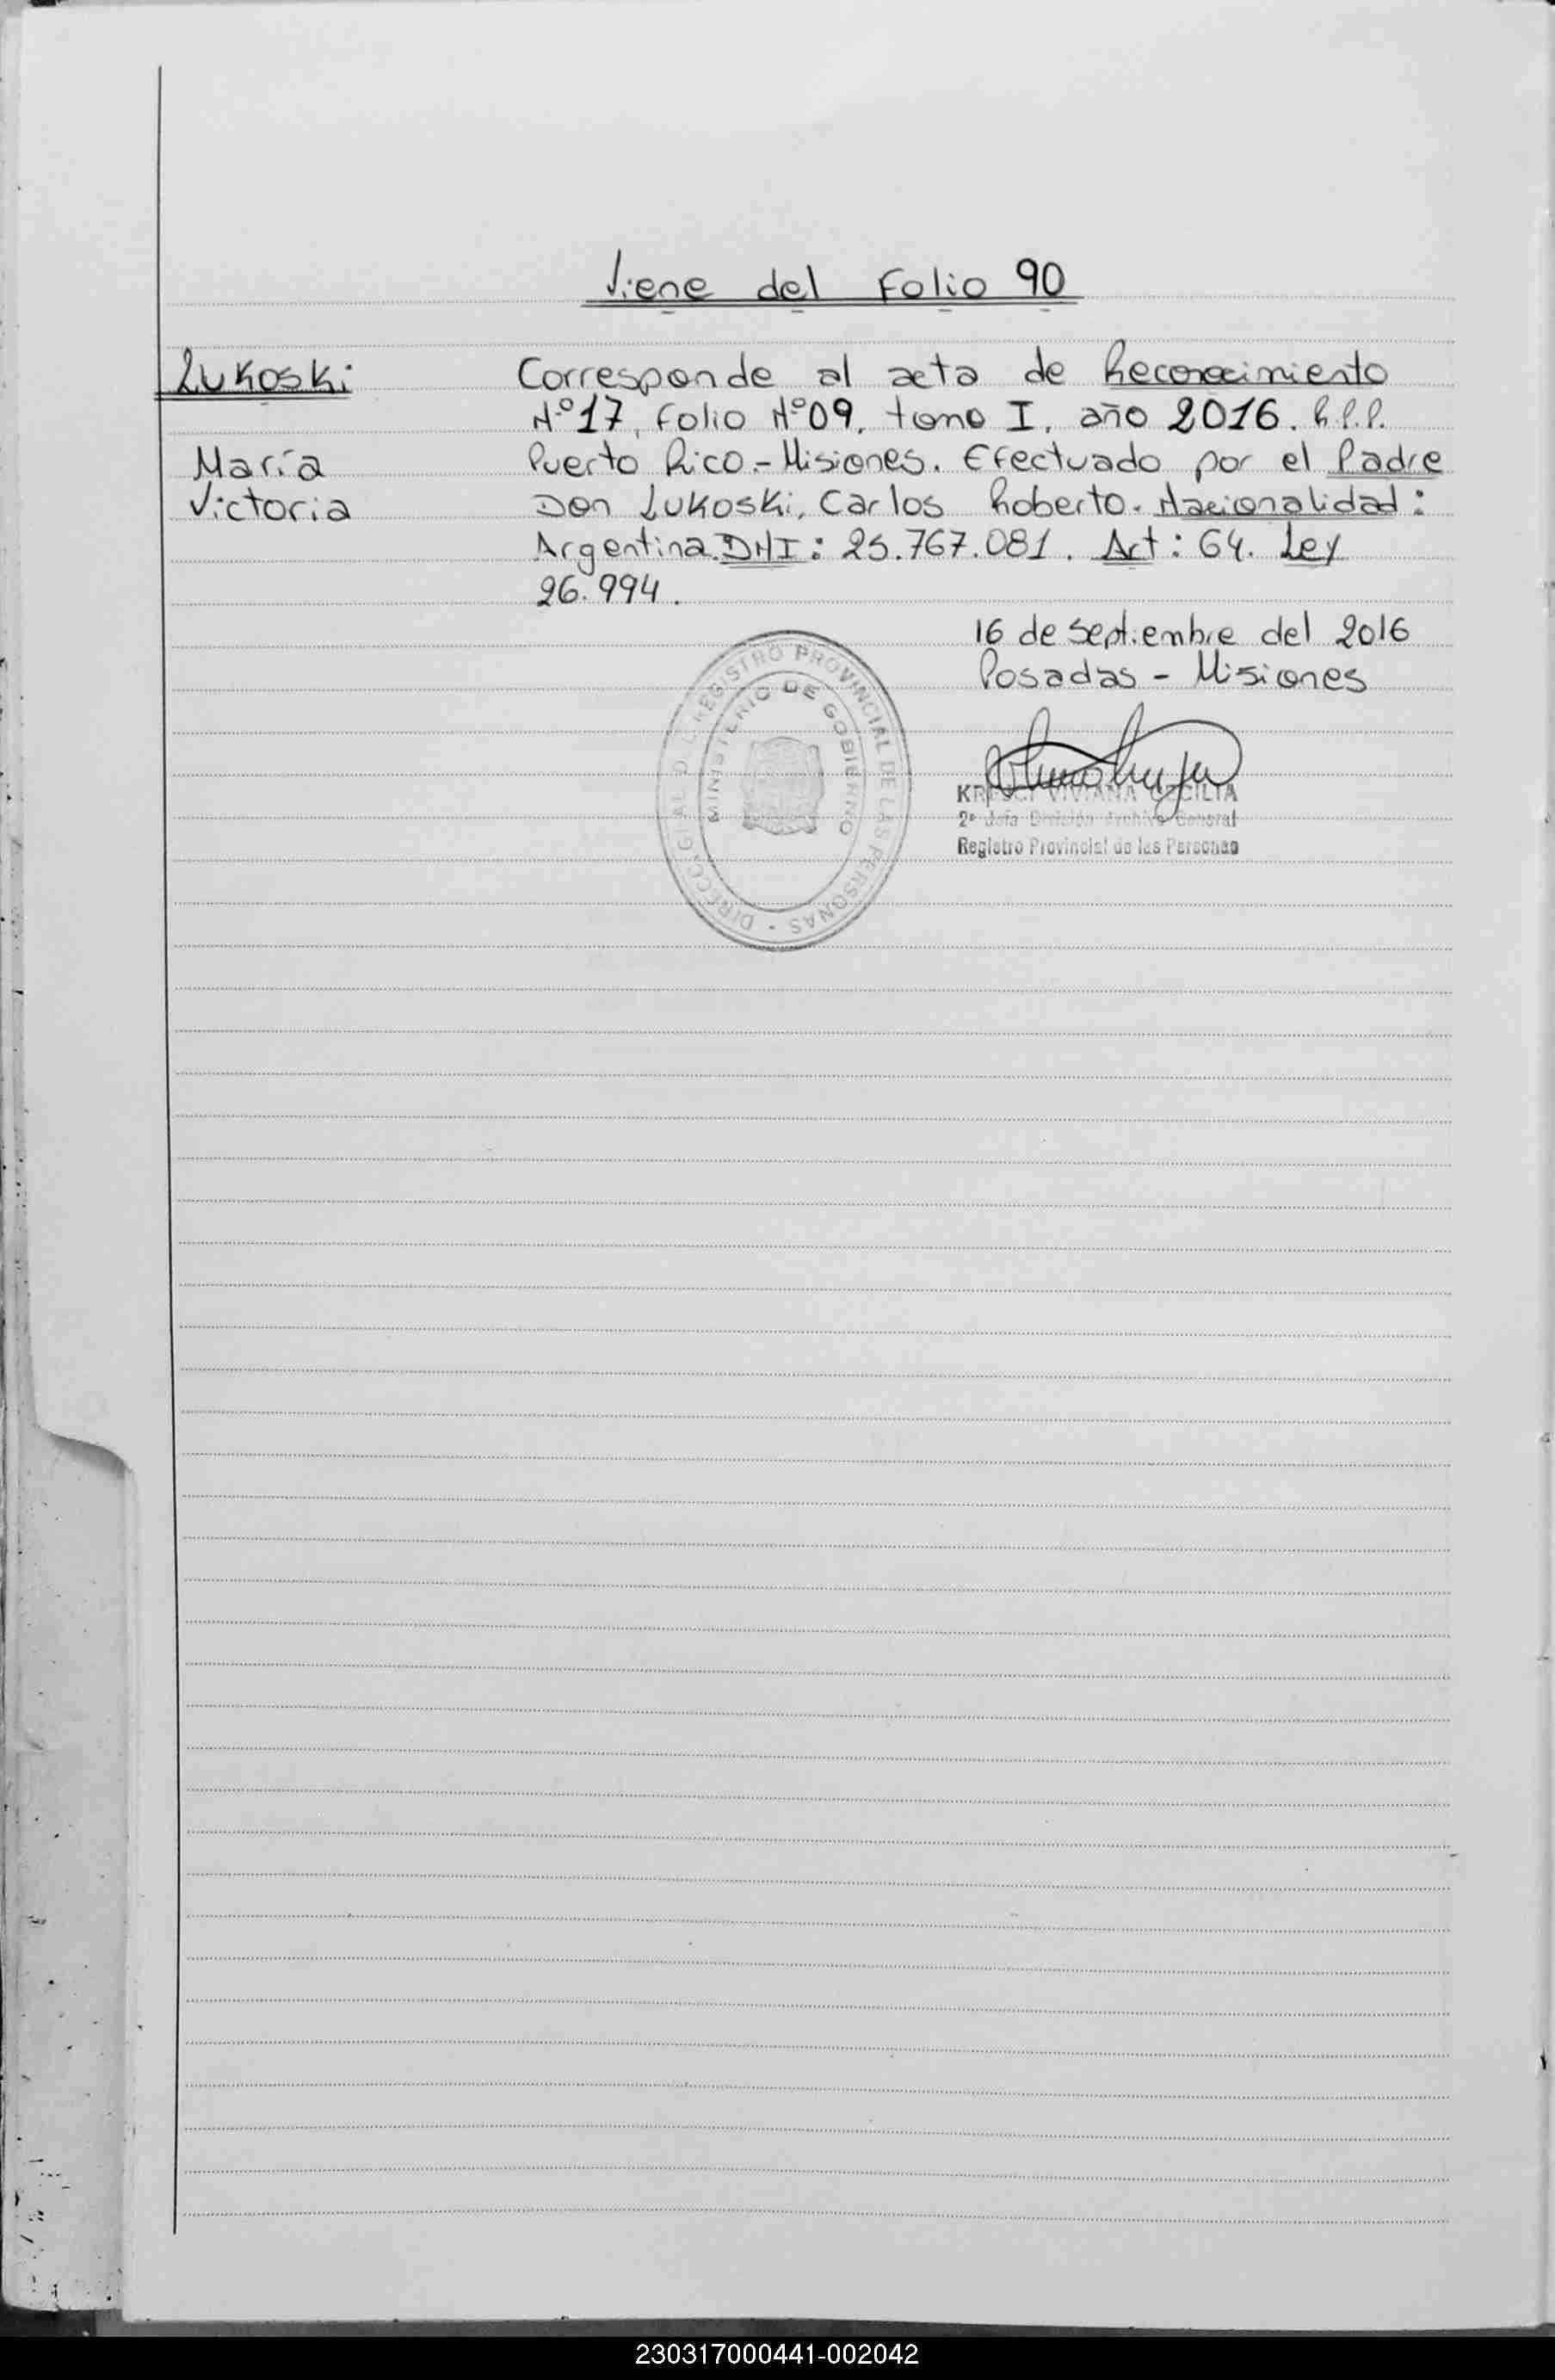 Viene del Folio 90
Lukoski
Corresponde al acta de Reconocimiento
N°17, Folio N°09, tomo I, año 2016. R.P.P.
María
Puerto Rico.- Misiones. Efectuado por el Padre
Victoria
Don Lukoski, Carlos Roberto. Nacionalidad:
Argentina. DNI: 25.767.081. Art: 64. Ley
26.994.
16 de septiembre del 2016
Posadas - Misiones
REGISTRO PROVINCIAL DE LAS PERSONAS
MINISTERIO DE GOBIERNO
VIVIANA CECILIA
2º Jefa División Archivo General
Registro Provincial de las Personas
230317000441-002042